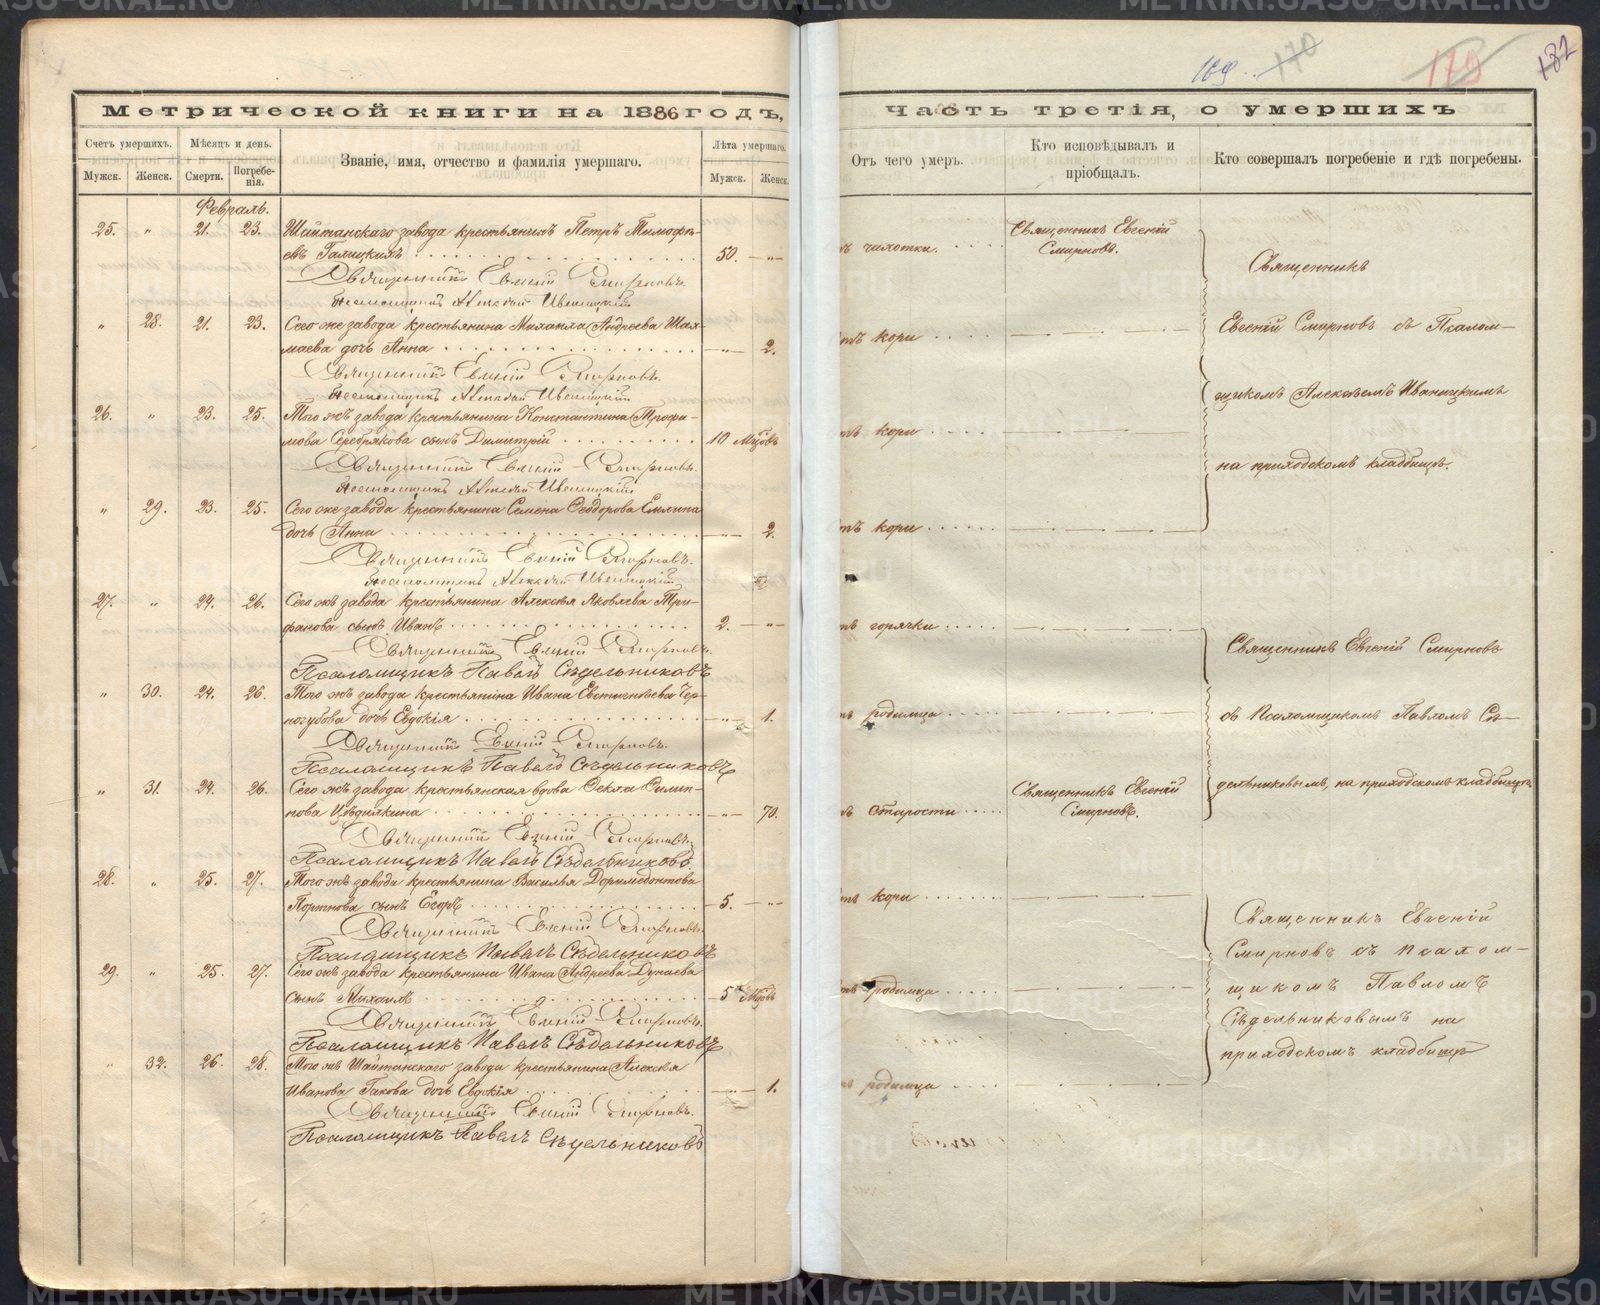 169. 170 118 132
Метрической книги на 1886 годъ,
Счетъ умершихъ. Мѣсяцъ и день. Званіе, имя, отчество и фамилія умершаго. Лѣта умершаго.
Мужск. Женск. Смерти. Погребенія. Мужск. Женск.
Февраль.
25. " 21. 23. Шайтанскаго завода крестьянинъ Петръ Тимофѣ-
евъ Галицкихъ 50. — " —
Священникъ Евгеній Смирновъ.
Псаломщикъ Алексѣй Иваницкій
" 28. 21. 23. Сего же завода крестьянина Михаила Андреева Шал-
маева дочь Анна — " — 2.
Священникъ Евгеній Смирновъ.
Псаломщикъ Алексѣй Иваницкій
26. " 23. 25. Того жъ завода крестьянина Константина Трофи-
мова Серебрякова сынъ Димитрій 10 Мцовъ
Священникъ Евгеній Смирновъ.
Псаломщикъ Алексѣй Иваницкій
" 29. 23. 25. Сего же завода крестьянина Семена Ѳеодорова Емлина
дочь Анна — " — 2.
Священникъ Евгеній Смирновъ.
Псаломщикъ Алексѣй Иваницкій
27. " 24. 26. Сего жъ завода крестьянина Алексѣя Яковлева Три-
фанова сынъ Иванъ 2. — " —
Священникъ Евгеній Смирновъ.
Псаломщикъ Павелъ Сѣдельниковъ
" 30. 24. 26. Того жъ завода крестьянина Ивана Евстигнѣева Чер-
ногубова дочь Евдокія — " — 1.
Священникъ Евгеній Смирновъ.
Псаломщикъ Павелъ Сѣдельниковъ
" 31. 24. 26. Сего жъ завода крестьянская вдова Ѳекла Филип-
пова Цѣдилкина — " — 70.
Священникъ Евгеній Смирновъ.
Псаломщикъ Павелъ Сѣдельниковъ
28. " 25. 27. Того жъ завода крестьянина Василья Доримедонтова
Портнова сынъ Егоръ 5. — " —
Священникъ Евгеній Смирновъ.
Псаломщикъ Павелъ Сѣдельниковъ
29. " 25. 27. Сего жъ завода крестьянина Ивана Андреева Дунаева
сынъ Михаилъ 5 Мцовъ
Священникъ Евгеній Смирновъ.
Псаломщикъ Павелъ Сѣдельниковъ
" 32. 26. 28. Того жъ Шайтанскаго завода крестьянина Алексѣя
Иванова Гакова дочь Евдокія — " — 1.
Священникъ Евгеній Смирновъ.
Псаломщикъ Павелъ Сѣдельниковъ
часть третія, о умершихъ
Отъ чего умеръ. Кто исповѣдывалъ и пріобщалъ. Кто совершалъ погребеніе и гдѣ погребены.
чихотки. Священникъ Евгеній
Смирновъ.
Священникъ
отъ кори Евгеній Смирновъ съ Псалом-
щикомъ Алексѣемъ Иваницкимъ
отъ кори
на приходскомъ кладбищѣ.
отъ кори
отъ горячки Священникъ Евгеній Смирновъ
родимца съ Псаломщикомъ Павломъ Сѣ-
Священникъ Евгеній дельниковымъ, на приходскомъ кладбищѣ
старости Смирновъ.
отъ кори Священникъ Евгеній
Смирновъ съ псалом-
родимца щикомъ Павломъ
Сѣдельниковымъ на
приходскомъ кладбищѣ
родимца
METRIKI.GASO-URAL.RU